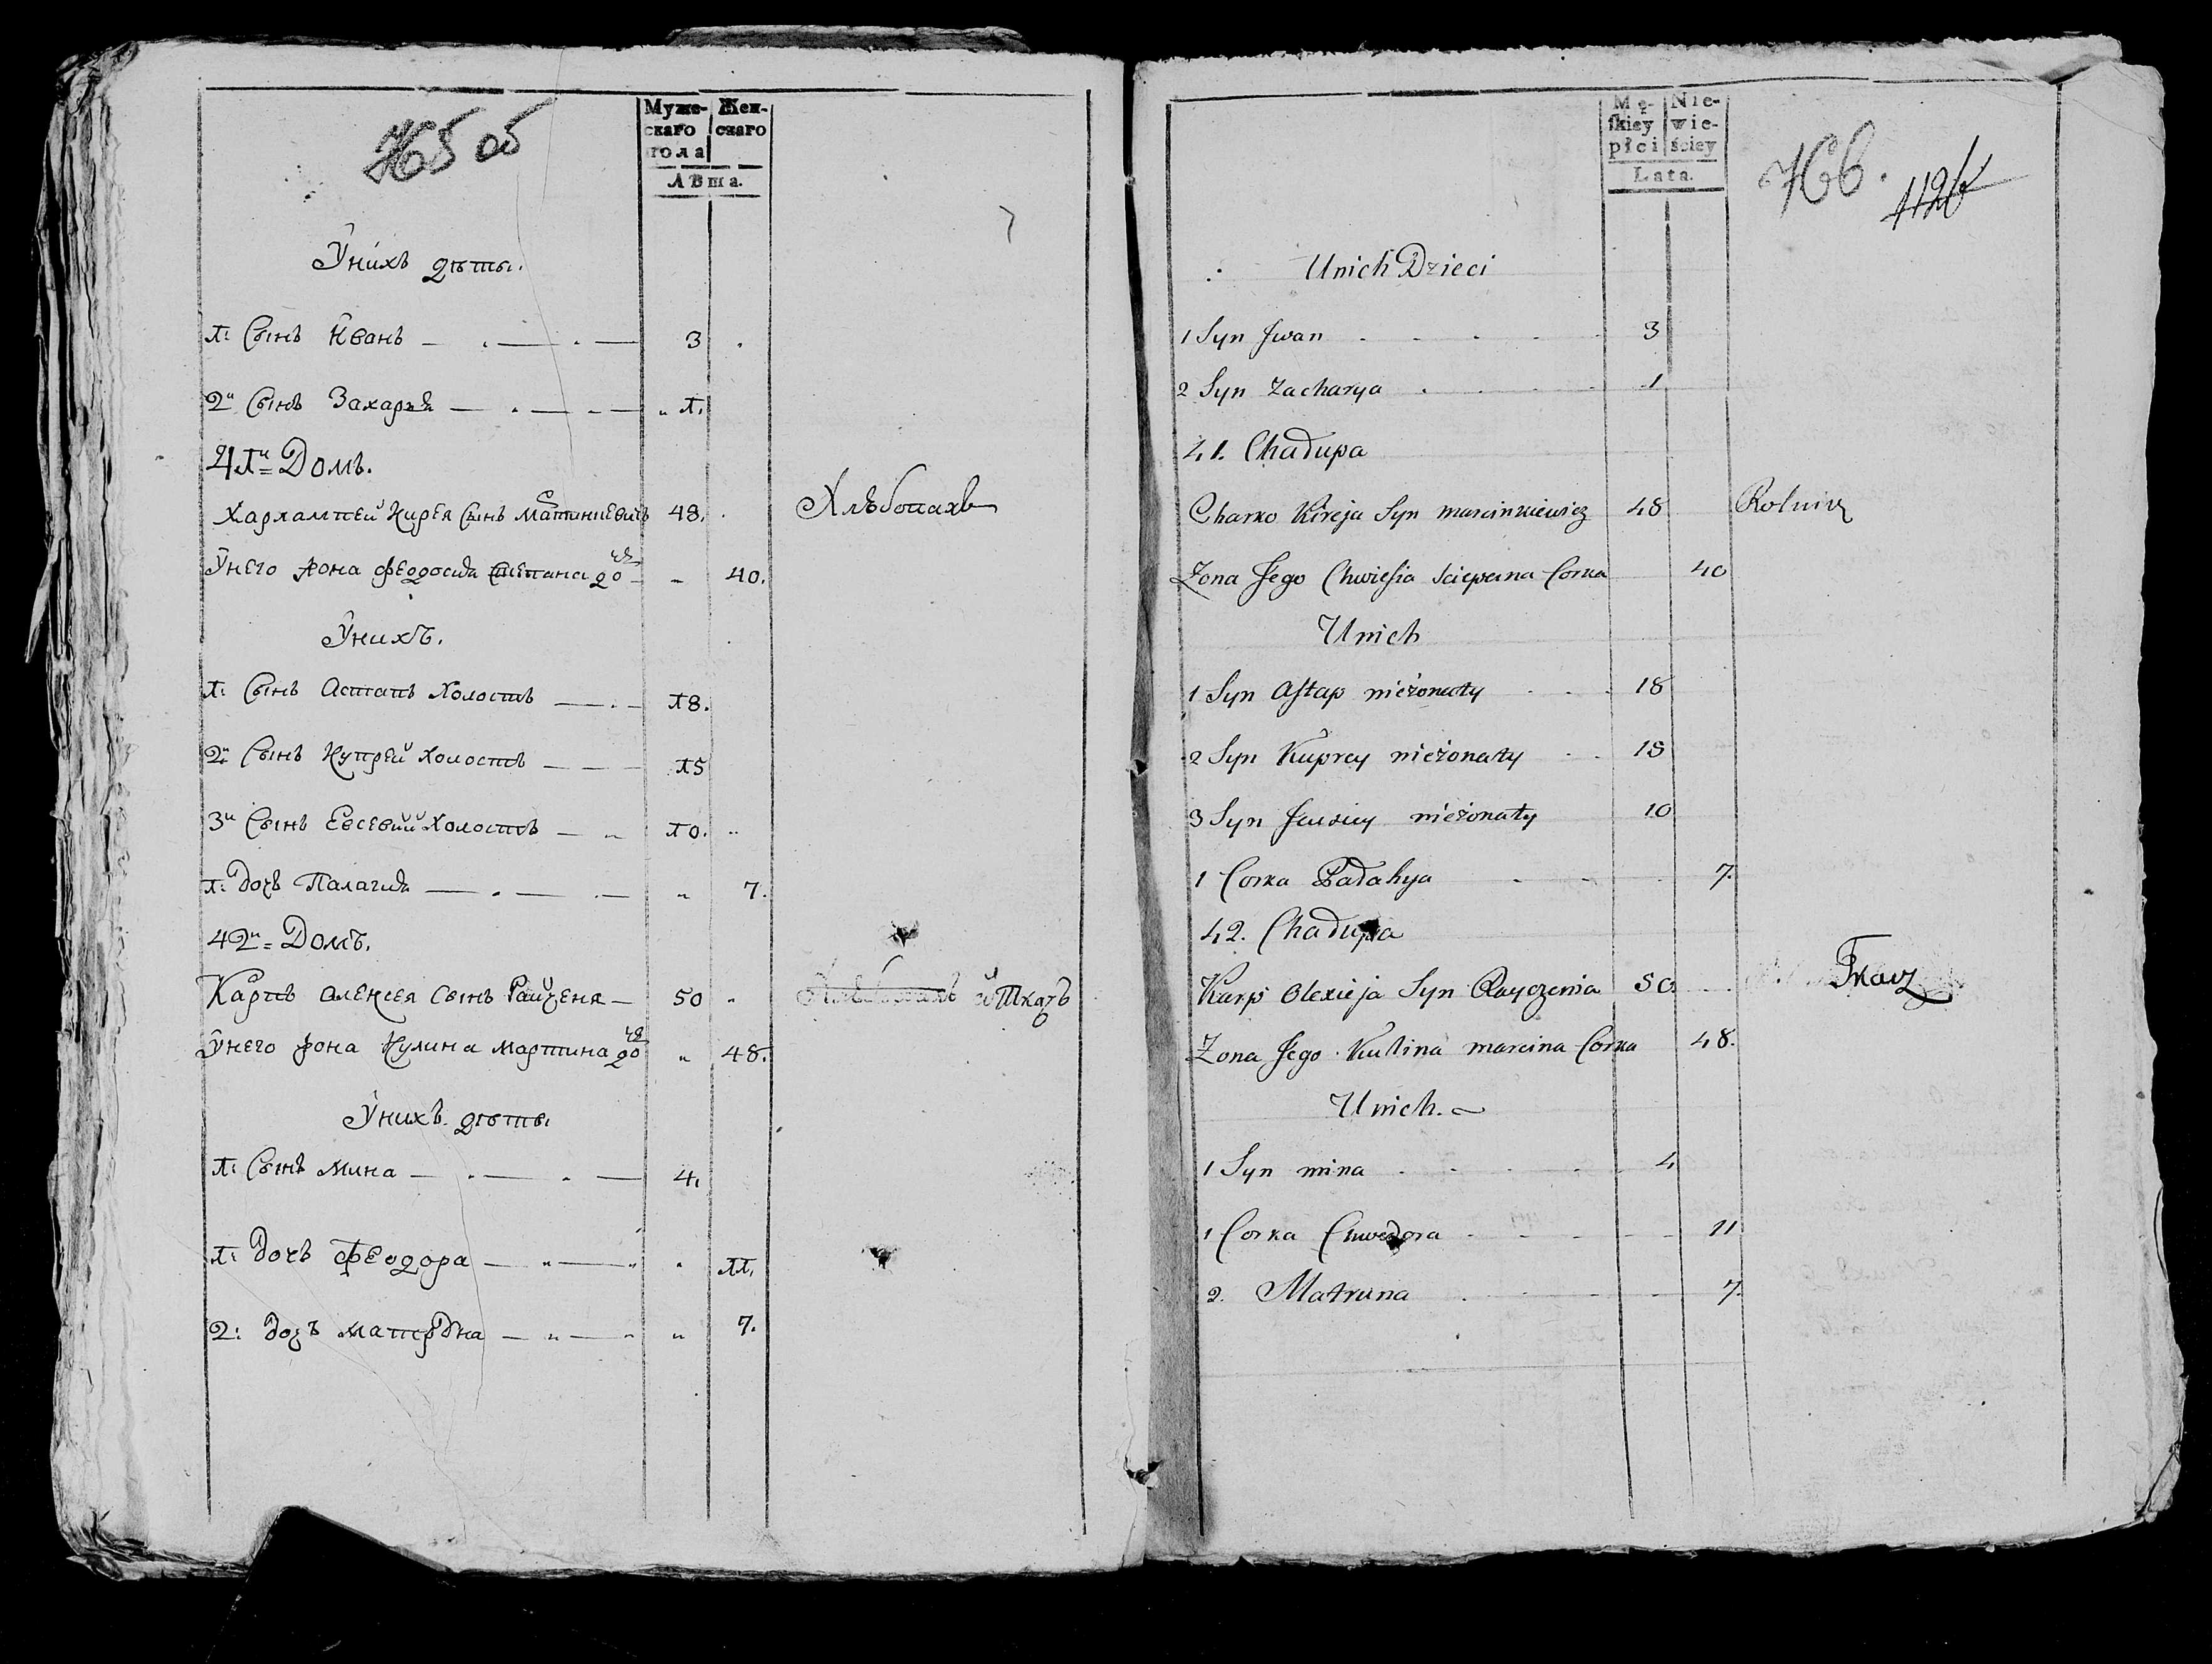 765 об
Муже-
скаго
пола
Жен-
скаго
Лѣта.
Унихъ дѣти.
1: Сынъ Иванъ 3
2й Сынъ Захарія 1.
41й Домъ.
Харлампей Кирея Сынъ Матинкевичъ 48. Хлѣбопахъ
Унего жона Феодосия Степана дочь 40.
Унихъ.
1: Сынъ Астапъ Холостъ 18.
2й Сынъ Купрей холостъ 15
3й Сынъ Евсевий Холостъ 10.
1: дочь Палагия 7.
42й Домъ.
Карпъ Алексея Сынъ Райченя 50 Хлѣбопахъ и Ткачъ
Унего жона Кулина мартина дочь 48.
Унихъ дѣти.
1: Сынъ Мина 4.
1: дочь Феодора 11.
2: дочь матрона 7.
Mę-
skiey
płci
Nie-
wie-
ściey
Lata.
766.
1126
Unich Dzieci
1 Syn Jwan 3
2 Syn Zacharya 1
41. Chadupa
Charko Kireja Syn marcinkiewicz 48 Rolnik
Zona Jego Chwiesia Sciepana Corka 40
Unich
1 Syn Astap nieżonaty 18
2 Syn Kuprey nieżonaty 15
3 Syn Jeusiey nieżonaty 10
1 Corka Padahya 7.
42. Chadupa
Karp Olexieja Syn Rayczenia 50. Tkacz
Zona Jego Kulina marcina Corka 48.
Unich.
1 Syn mina 4
1 Corka Chwedora 11
2. Matruna 7.